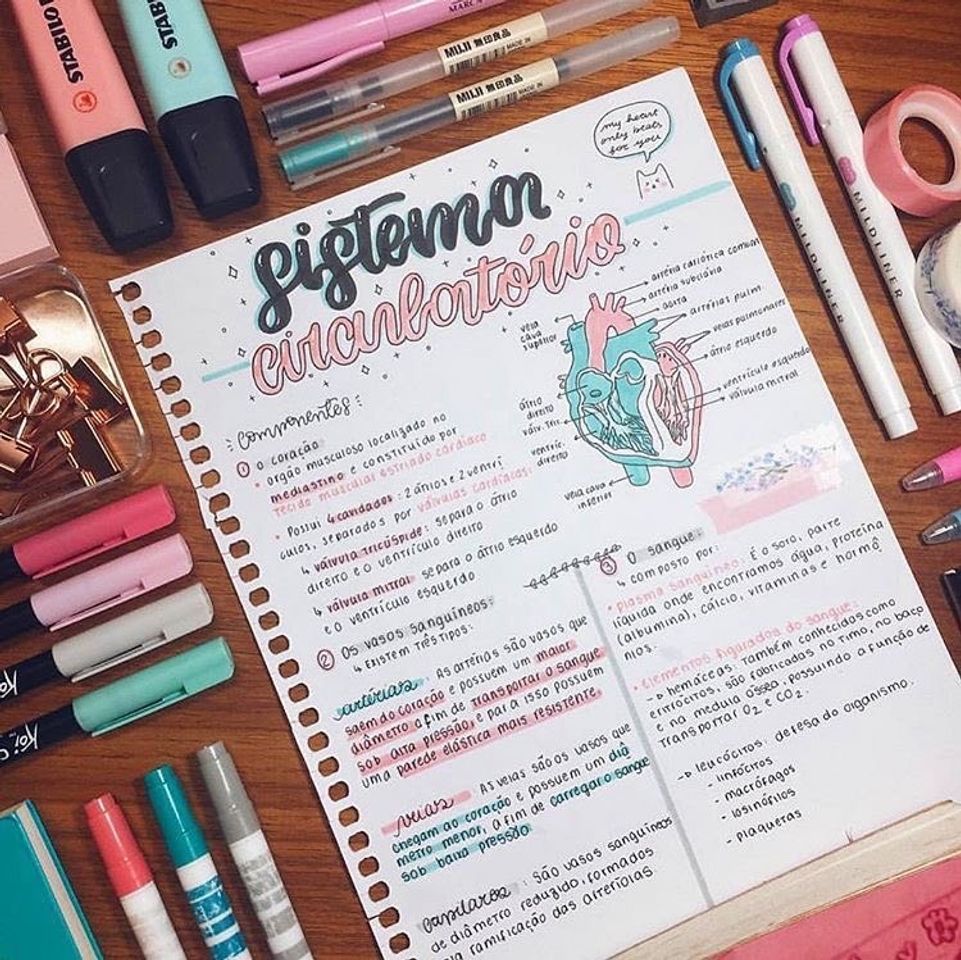 STABILO
STABILO
MUJI 無印良品
MADE IN
MUJI 無印良品
MADE IN
MILDLINER
MILDLINER
my heart
only beats
for you
sistema
circulatório
artéria carótida comum
artéria subclávia
aorta
artérias pulm.
veias pulmonares
átrio esquerdo
ventrículo esquerdo
válvula mitral
veia
cava
superior
átrio
direito
válv. tric.
ventríc.
direito
veia cava
inferior
Componentes:
1 O coração
• orgão musculoso localizado no
mediastino e constituído por
tecido muscular estriado cardíaco
• Possui 4 cavidades: 2 átrios e 2 ventrí
culos, separados por válvulas cardíacas:
↳ válvula tricúspide: separa o átrio
direito e o ventrículo direito
↳ válvula mitral separa o átrio esquerdo
e o ventrículo esquerdo
2 Os vasos sanguíneos:
↳ EXISTEM TRÊS TIPOS:
artérias: As artérias são vasos que
saem do coração e possuem um maior
diâmetro a fim de transportar o sangue
sob alta pressão, e para isso possuem
uma parede elástica mais resistente.
veias As veias são os vasos que
chegam ao coração e possuem um diâ
metro menor, a fim de carregar o sangue
sob baixa pressão
capilares: são vasos sanguíneos
de diâmetro reduzido, formados
pela ramificação das arteríolas.
3 O sangue:
↳ composto por:
• plasma sanguíneo: É o soro, parte
líquida onde encontramos água, proteína
(albumina), cálcio, vitaminas e hormô
nios.
• Elementos figurados do sangue:
→ hemáceas: também conhecidos como
eritrócitos, são fabricadas no timo, no baço
e na medula óssea, possuindo a função de
transportar O2 e CO2.
→ leucócitos: defesa do organismo.
- linfócitos
- macrófagos
- eosinófilos
- plaquetas
Koi
Koi